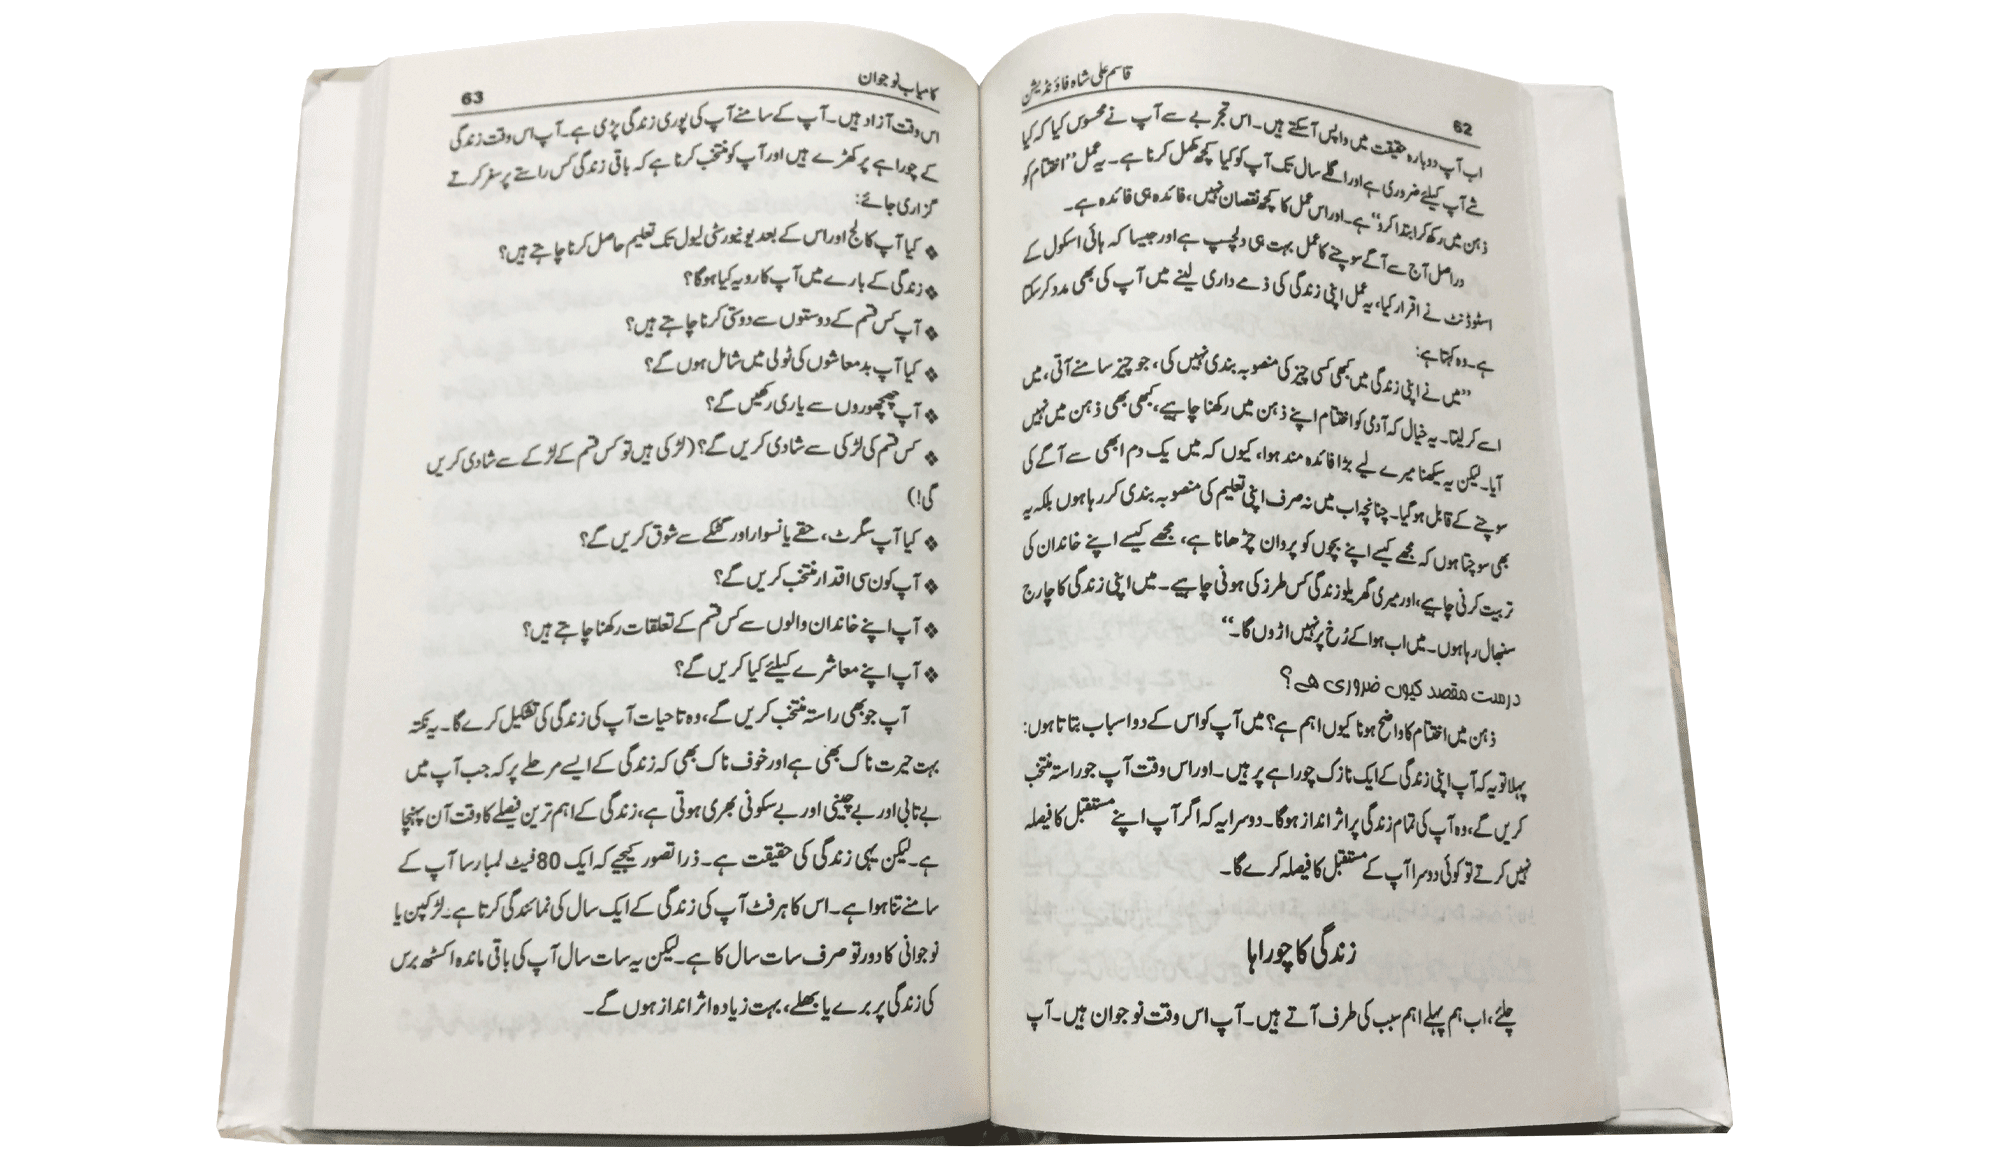 قاسم علی شاہ فاؤنڈیشن
62
اب آپ دوبارہ حقیقت میں واپس آسکتے ہیں۔ اس تجربے سے آپ نے محسوس کیا کہ کیا
شے آپ کیلئے ضروری ہے اور اگلے سال تک آپ کو کیا کچھ مکمل کرنا ہے۔ یہ عمل ’’اختتام کو
ذہن میں رکھ کر ابتدا کرو‘‘ ہے۔ اور اس عمل کا کچھ نقصان نہیں، فائدہ ہی فائدہ ہے۔
دراصل آج سے آگے سوچنے کا عمل بہت ہی دلچسپ ہے اور جیسا کہ ہائی اسکول کے
اسٹوڈنٹ نے اقرار کیا، یہ عمل اپنی زندگی کی ذمے داری لینے میں آپ کی بھی مدد کرسکتا
ہے۔ وہ کہتا ہے:
’’میں نے اپنی زندگی میں کبھی کسی چیز کی منصوبہ بندی نہیں کی، جو چیز سامنے آتی، میں
اسے کر لیتا۔ یہ خیال کہ آدمی کو اختتام اپنے ذہن میں رکھنا چاہیے، کبھی بھی ذہن میں نہیں
آیا۔ لیکن یہ سیکھنا میرے لیے بڑا فائدہ مند ہوا، کیوں کہ میں یک دم ابھی سے آگے کی
سوچنے کے قابل ہوگیا۔ چنانچہ اب میں نہ صرف اپنی تعلیم کی منصوبہ بندی کر رہا ہوں بلکہ یہ
بھی سوچتا ہوں کہ مجھے کیسے اپنے بچوں کو پروان چڑھانا ہے، مجھے کیسے اپنے خاندان کی
تربیت کرنی چاہیے، اور میری گھریلو زندگی کس طرز کی ہونی چاہیے۔ میں اپنی زندگی کا چارج
سنبھال رہا ہوں۔ میں اب ہوا کے رُخ پر نہیں اڑوں گا۔‘‘
درست مقصد کیوں ضروری ہے؟
ذہن میں اختتام کا واضح ہونا کیوں اہم ہے؟ میں آپ کو اس کے دو اسباب بتاتا ہوں:
پہلا تو یہ کہ آپ اپنی زندگی کے ایک نازک چوراہے پر ہیں۔ اور اس وقت آپ جو راستہ منتخب
کریں گے، وہ آپ کی تمام زندگی پر اثر انداز ہوگا۔ دوسرا یہ کہ اگر آپ اپنے مستقبل کا فیصلہ
نہیں کرتے تو کوئی دوسرا آپ کے مستقبل کا فیصلہ کرے گا۔
زندگی کا چوراہا
چلئے، اب ہم پہلے اہم سبب کی طرف آتے ہیں۔ آپ اس وقت نوجوان ہیں۔ آپ
کامیاب نوجوان
63
اس وقت آزاد ہیں۔ آپ کے سامنے آپ کی پوری زندگی پڑی ہے۔ آپ اس وقت زندگی
کے چوراہے پر کھڑے ہیں اور آپ کو منتخب کرنا ہے کہ باقی زندگی کس راستے پر سفر کرتے
گزاری جائے:
❖ کیا آپ کالج اور اس کے بعد یونیورسٹی لیول تک تعلیم حاصل کرنا چاہتے ہیں؟
❖ زندگی کے بارے میں آپ کا رویہ کیا ہوگا؟
❖ آپ کس قسم کے دوستوں سے دوستی کرنا چاہتے ہیں؟
❖ کیا آپ بدمعاشوں کی ٹولی میں شامل ہوں گے؟
❖ آپ چھچھوروں سے یاری رکھیں گے؟
❖ کس قسم کی لڑکی سے شادی کریں گے؟ (لڑکی ہیں تو کس قسم کے لڑکے سے شادی کریں
گی!)
❖ کیا آپ سگرٹ، حقے یا نسوار اور گٹکے سے شوق کریں گے؟
❖ آپ کون سی اقدار منتخب کریں گے؟
❖ آپ اپنے خاندان والوں سے کس قسم کے تعلقات رکھنا چاہتے ہیں؟
❖ آپ اپنے معاشرے کیلئے کیا کریں گے؟
آپ جو بھی راستہ منتخب کریں گے، وہ تاحیات آپ کی زندگی کی تشکیل کرے گا۔ یہ نکتہ
بہت حیرت ناک بھی ہے اور خوف ناک بھی کہ زندگی کے ایسے مرحلے پر کہ جب آپ میں
بے تابی اور بے چینی اور بے سکونی بھری ہوتی ہے، زندگی کے اہم ترین فیصلے کا وقت آن پہنچا
ہے۔ لیکن یہی زندگی کی حقیقت ہے۔ ذرا تصور کیجیے کہ ایک 80 فیٹ لمبا رسا آپ کے
سامنے تنا ہوا ہے۔ اس کا ہر فٹ آپ کی زندگی کے ایک سال کی نمائندگی کرتا ہے۔ لڑکپن یا
نوجوانی کا دور تو صرف سات سال کا ہے۔ لیکن یہ سات سال آپ کی باقی ماندہ اکسٹھ برس
کی زندگی پر برے یا بھلے، بہت زیادہ اثر انداز ہوں گے۔